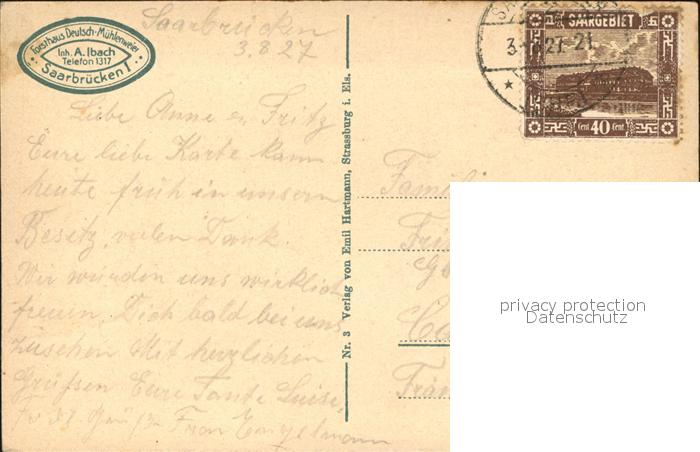 Forsthaus Deutsch-Mühlenweier
Inh. A. Ibach
Telefon 1317
Saarbrücken 1
Saarbrücken
3.8.27
Liebe Anne u. Fritz
Eure liebe Karte kam
heute früh in unsern
Besitz, vielen Dank.
Wir würden uns wirklich
freuen, Dich bald bei uns
zu sehen. Mit herzlichen
Grüssen Eure Tante Luise,
Frau
Nr. 3 Verlag von Emil Hartmann, Strassburg i. Els.
SAARGEBIET
Cent 40 Cent
Familie
privacy protection
Datenschutz